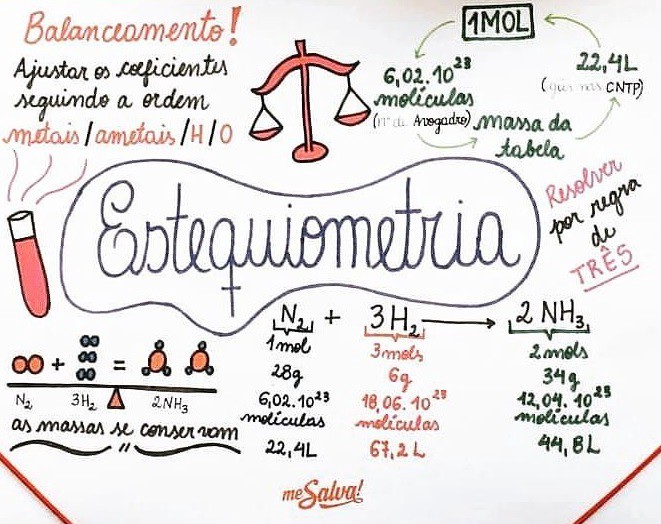 Balanceamento!
Ajustar os coeficientes
seguindo a ordem
metais/ametais/H/O
1MOL
6,02.10²³
moléculas
(nº de Avogadro)
massa da
tabela
22,4L
(gás nas CNTP)
Estequiometria
Resolver
por regra
de
TRÊS
N₂ + 3H₂ → 2 NH₃
1mol 3mols 2mols
28g 6g 34g
6,02.10²³ 18,06.10²³ 12,04.10²³
moléculas moléculas moléculas
22,4L 67,2L 44,8L
+ =
N₂ 3H₂ 2NH₃
as massas se conservam
"
me Salva!